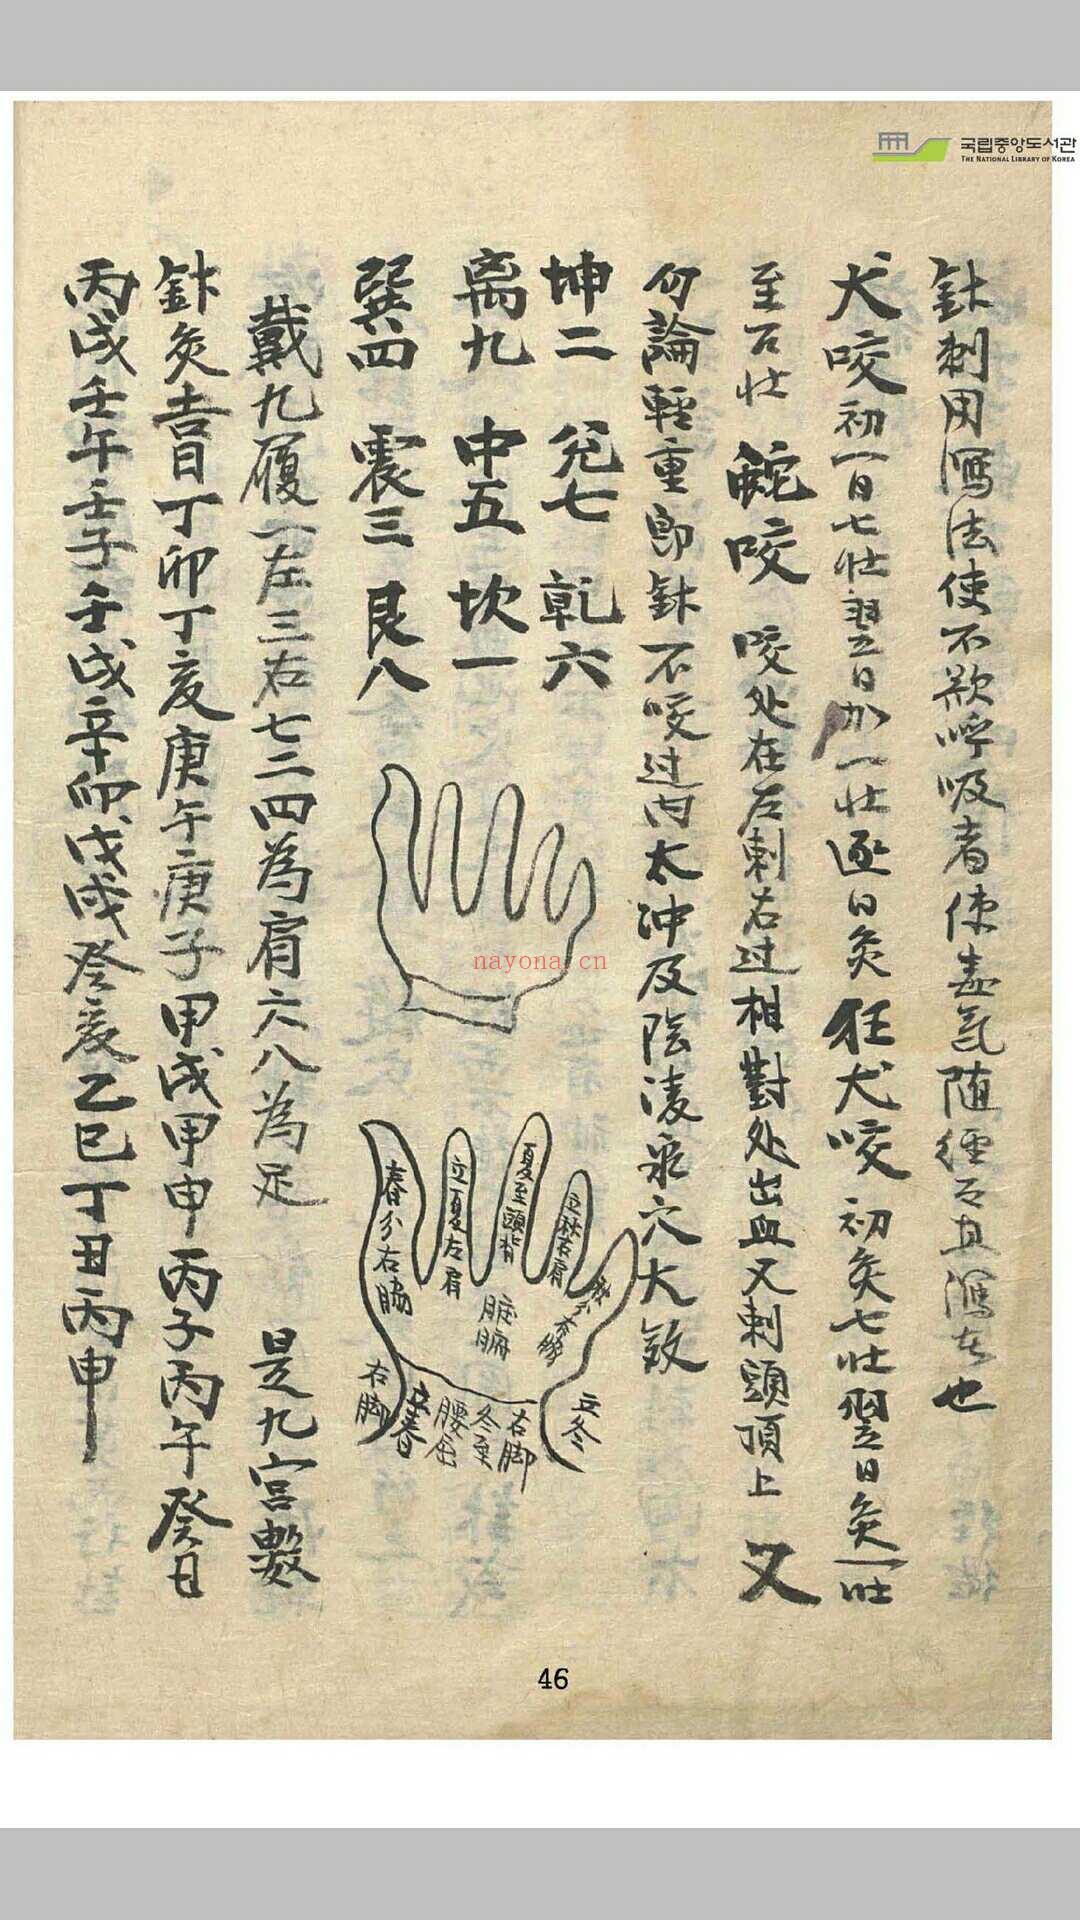 국립중앙도서관
THE NATIONAL LIBRARY OF KOREA
針刺用瀉法使不欲呼吸者使毒氣随經而且瀉去也
犬咬初一日七壯翌日加一壯逐日灸狂犬咬初灸七壯翌日灸一壯
至百壯 蛇咬 咬处在左刺右过相對处出血又刺頭頂上 又
勿論輕重即針不咬过内太冲及陰凌泉穴大效
坤二 兌七 乾六
离九 中五 坎一
巽四 震三 艮八
戴九履一左三右七二四為肩六八為足 是九宮數
針灸吉日丁卯丁亥庚午庚子甲戌甲申丙子丙午癸日
丙戌壬午壬子壬戌辛卯戊戌癸亥乙巳丁丑丙申
春分右脇
立夏左肩
夏至頭背
立秋右肩
臟腑
右脚
立春
腰尻
冬至
右脚
立冬
nayona.cn
46